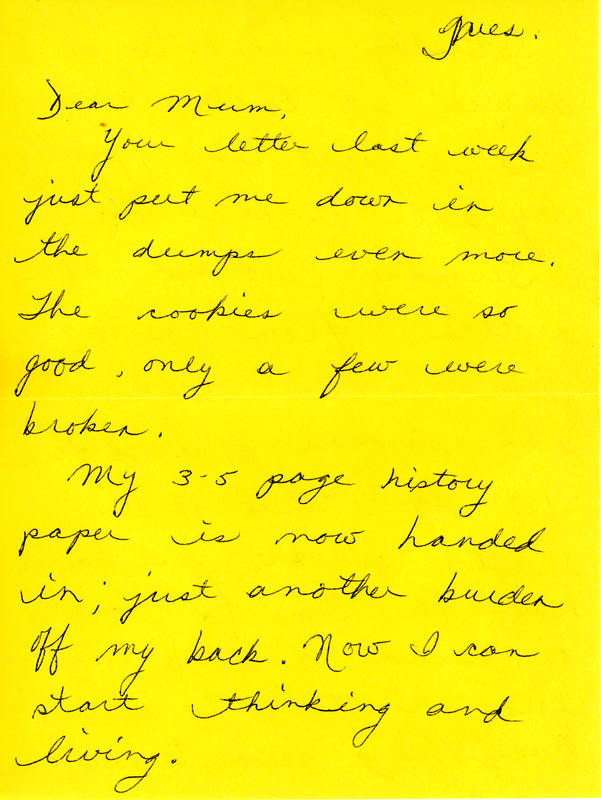 Tues.
Dear Mum,
Your letter last week
just put me down in
the dumps even more.
The cookies were so
good, only a few were
broken.
My 3-5 page history
paper is now handed
in; just another burden
off my back. Now I can
start thinking and
living.